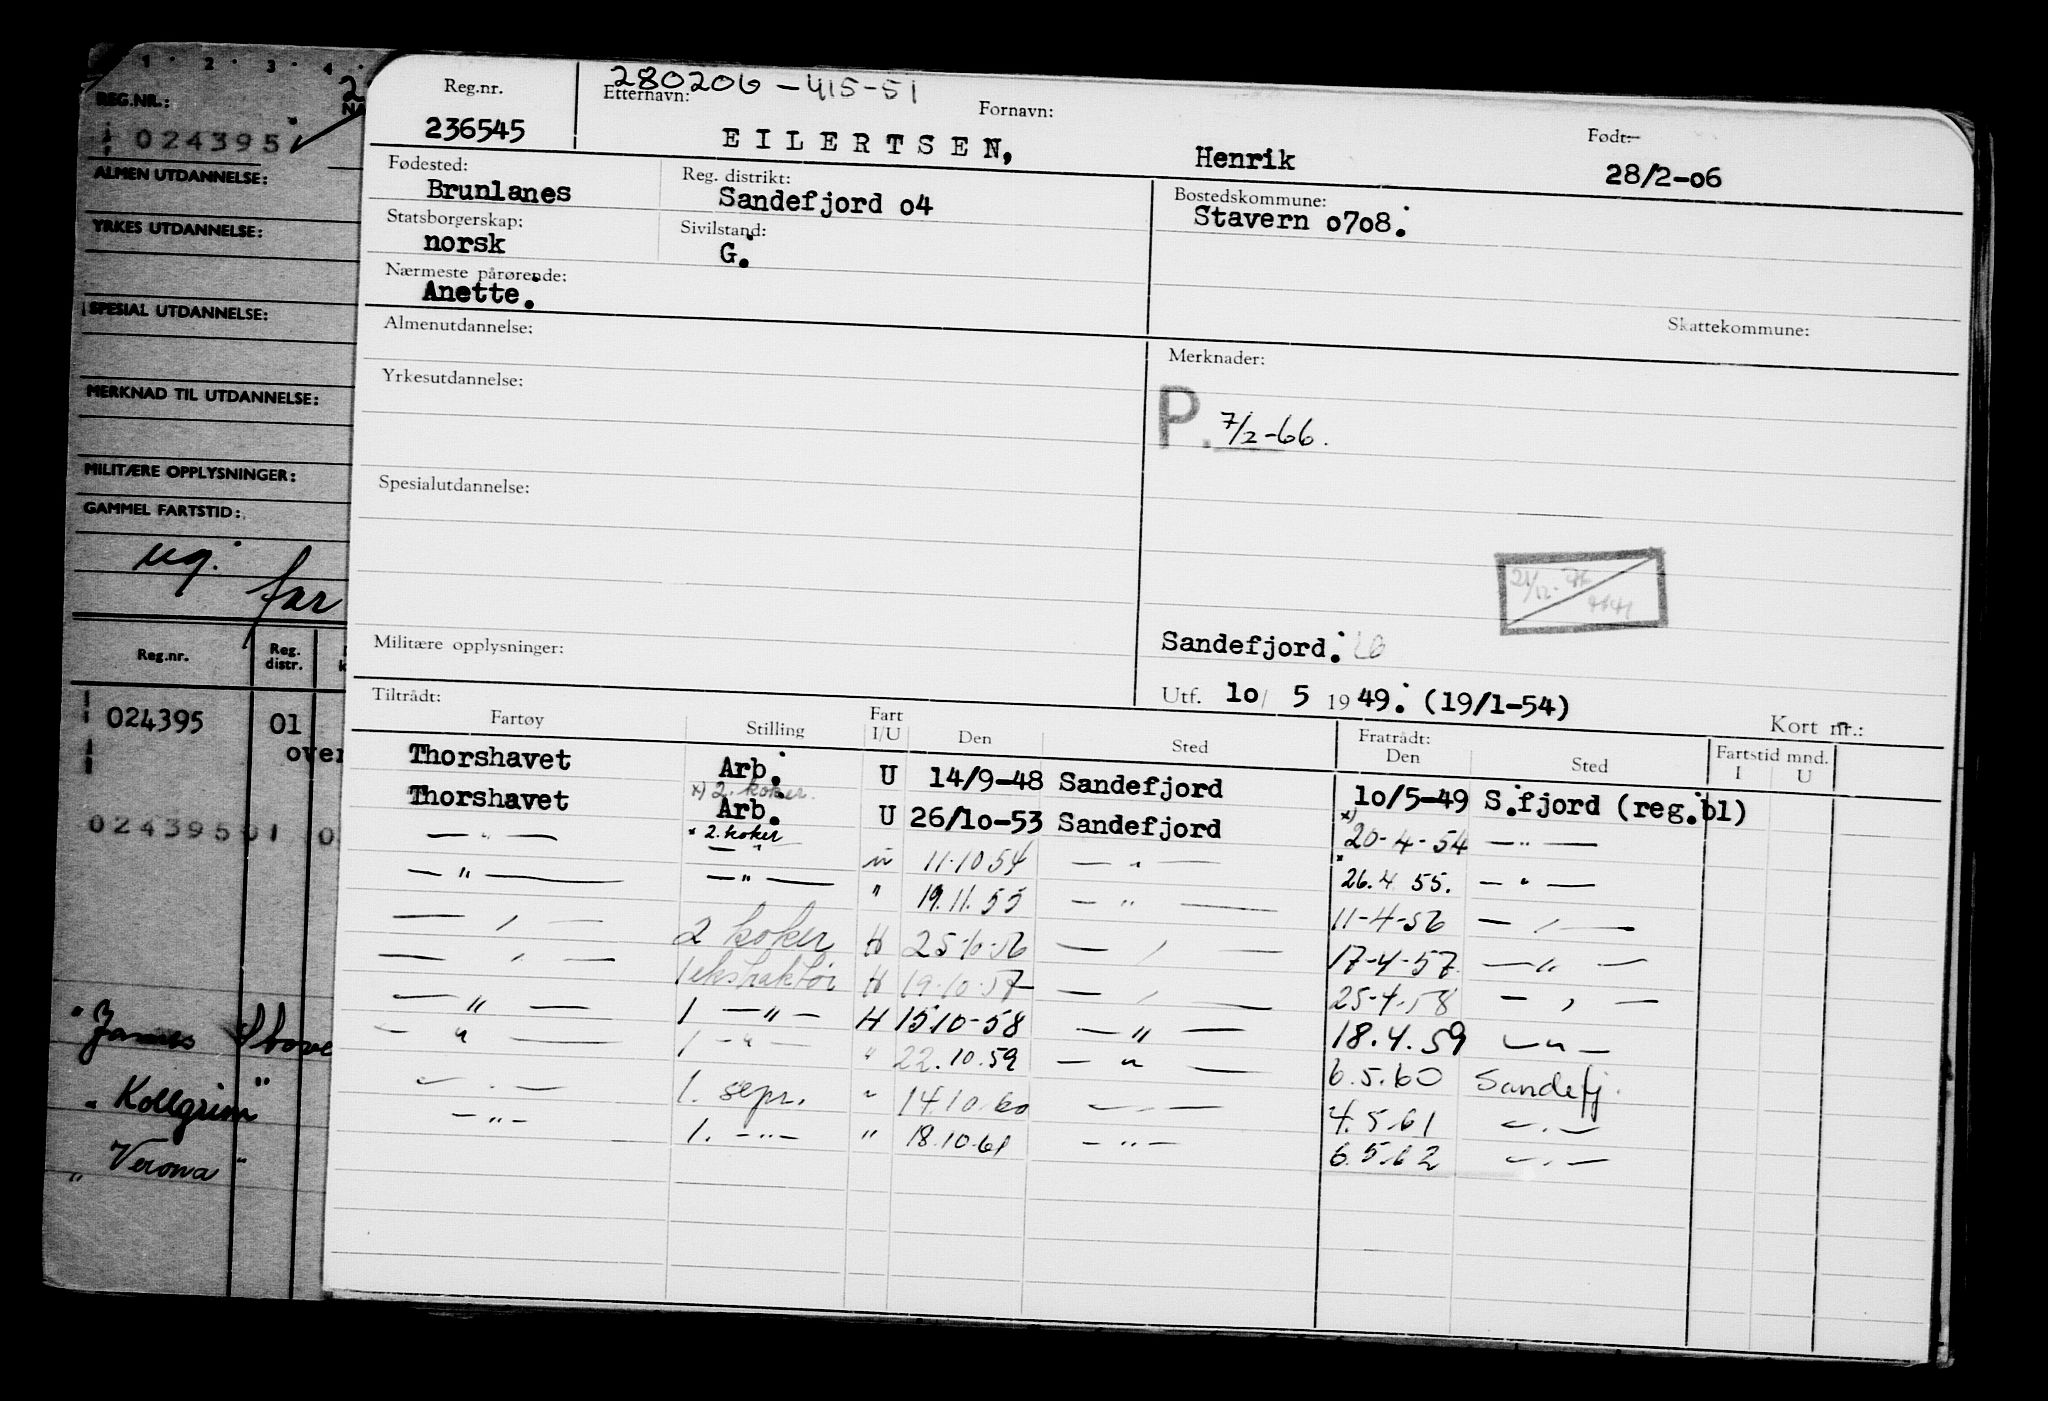 1 · 2 · 3 · 4 ·
REG.NR.:
024395
ALMEN UTDANNELSE:
YRKES UTDANNELSE:
SPESIAL UTDANNELSE:
MERKNAD TIL UTDANNELSE:
MILITÆRE OPPLYSNINGER:
GAMMEL FARTSTID:
far
Reg.nr. Reg. distr.
024395 01
over
024395 01 0
"James Stove
"Kollgrim"
"Verona"
280206-415-51
Reg.nr. Etternavn: Fornavn: Født:
236545 EILERTSEN, Henrik 28/2-06
Fødested: Reg. distrikt: Bostedskommune:
Brunlanes Sandefjord o4 Stavern o7o8.
Statsborgerskap: Sivilstand:
norsk G.
Nærmeste pårørende:
Anette.
Skattekommune:
Almenutdannelse: Merknader:
Yrkesutdannelse:
P. 7/2-66.
Spesialutdannelse:
Militære opplysninger: Sandefjord.
Utf. 1o/ 5 1949. (19/1-54)
Kort nr.:
Tiltrådt: Fratrådt:
Fartøy Stilling Fart I/U Den Sted Den Sted Fartstid mnd. I U
Thorshavet Arb. U 14/9-48 Sandefjord 1o/5-49 S.fjord (reg.bl)
x) 2. koker
Thorshavet Arb. U 26/1o-53 Sandefjord x) 20-4-54 — " —
x 2. koker
— " — — " — " 11.10 54 — " — x 26.4 55. — " —
— " — — " — " 19.11.55 — " — 11-4-56 — " —
— " — 2 koker H 25-10-56 — " — 17-4-57 — " —
— " — 1 ekstraktør H 19-10-57 — " — 25-4-58 — " —
— " — 1 — " — H 15 10-58 — " — 18.4.59 — " —
— " — 1 — " — " 22.10.59 — " — 6.5.60 Sandefj.
— " — 1. sepr. " 14 10 60 — " — 4.5.61 — " —
— " — 1. — " — " 18.10.61 — " — 6.5.62 — " —